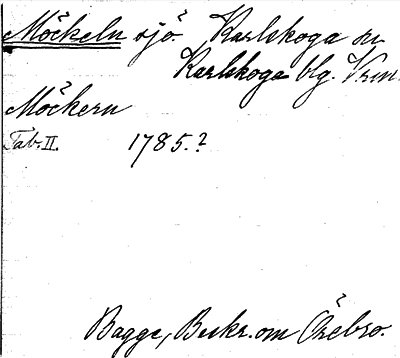 Möckeln sjö. Karlskoga sn
Karlskoga blg. Vrml.
Möckern
Tab. II. 1785.?
Bagge, Beskr. om Örebro.